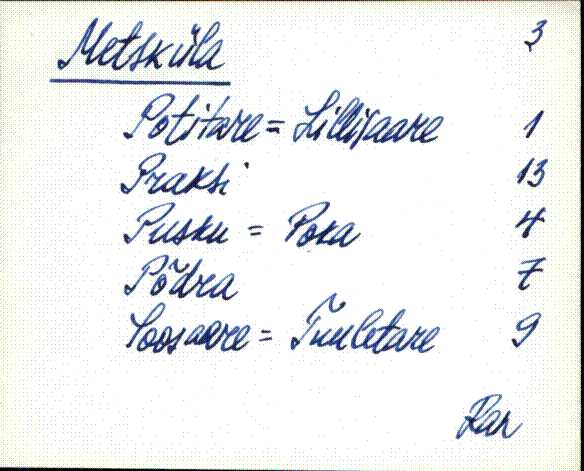 Metsküla 3
Potitare = Lillisaare 1
Praksi 13
Pusku = Poka 4
Põdra 7
Soosaare = Tuuletare 9
Ran